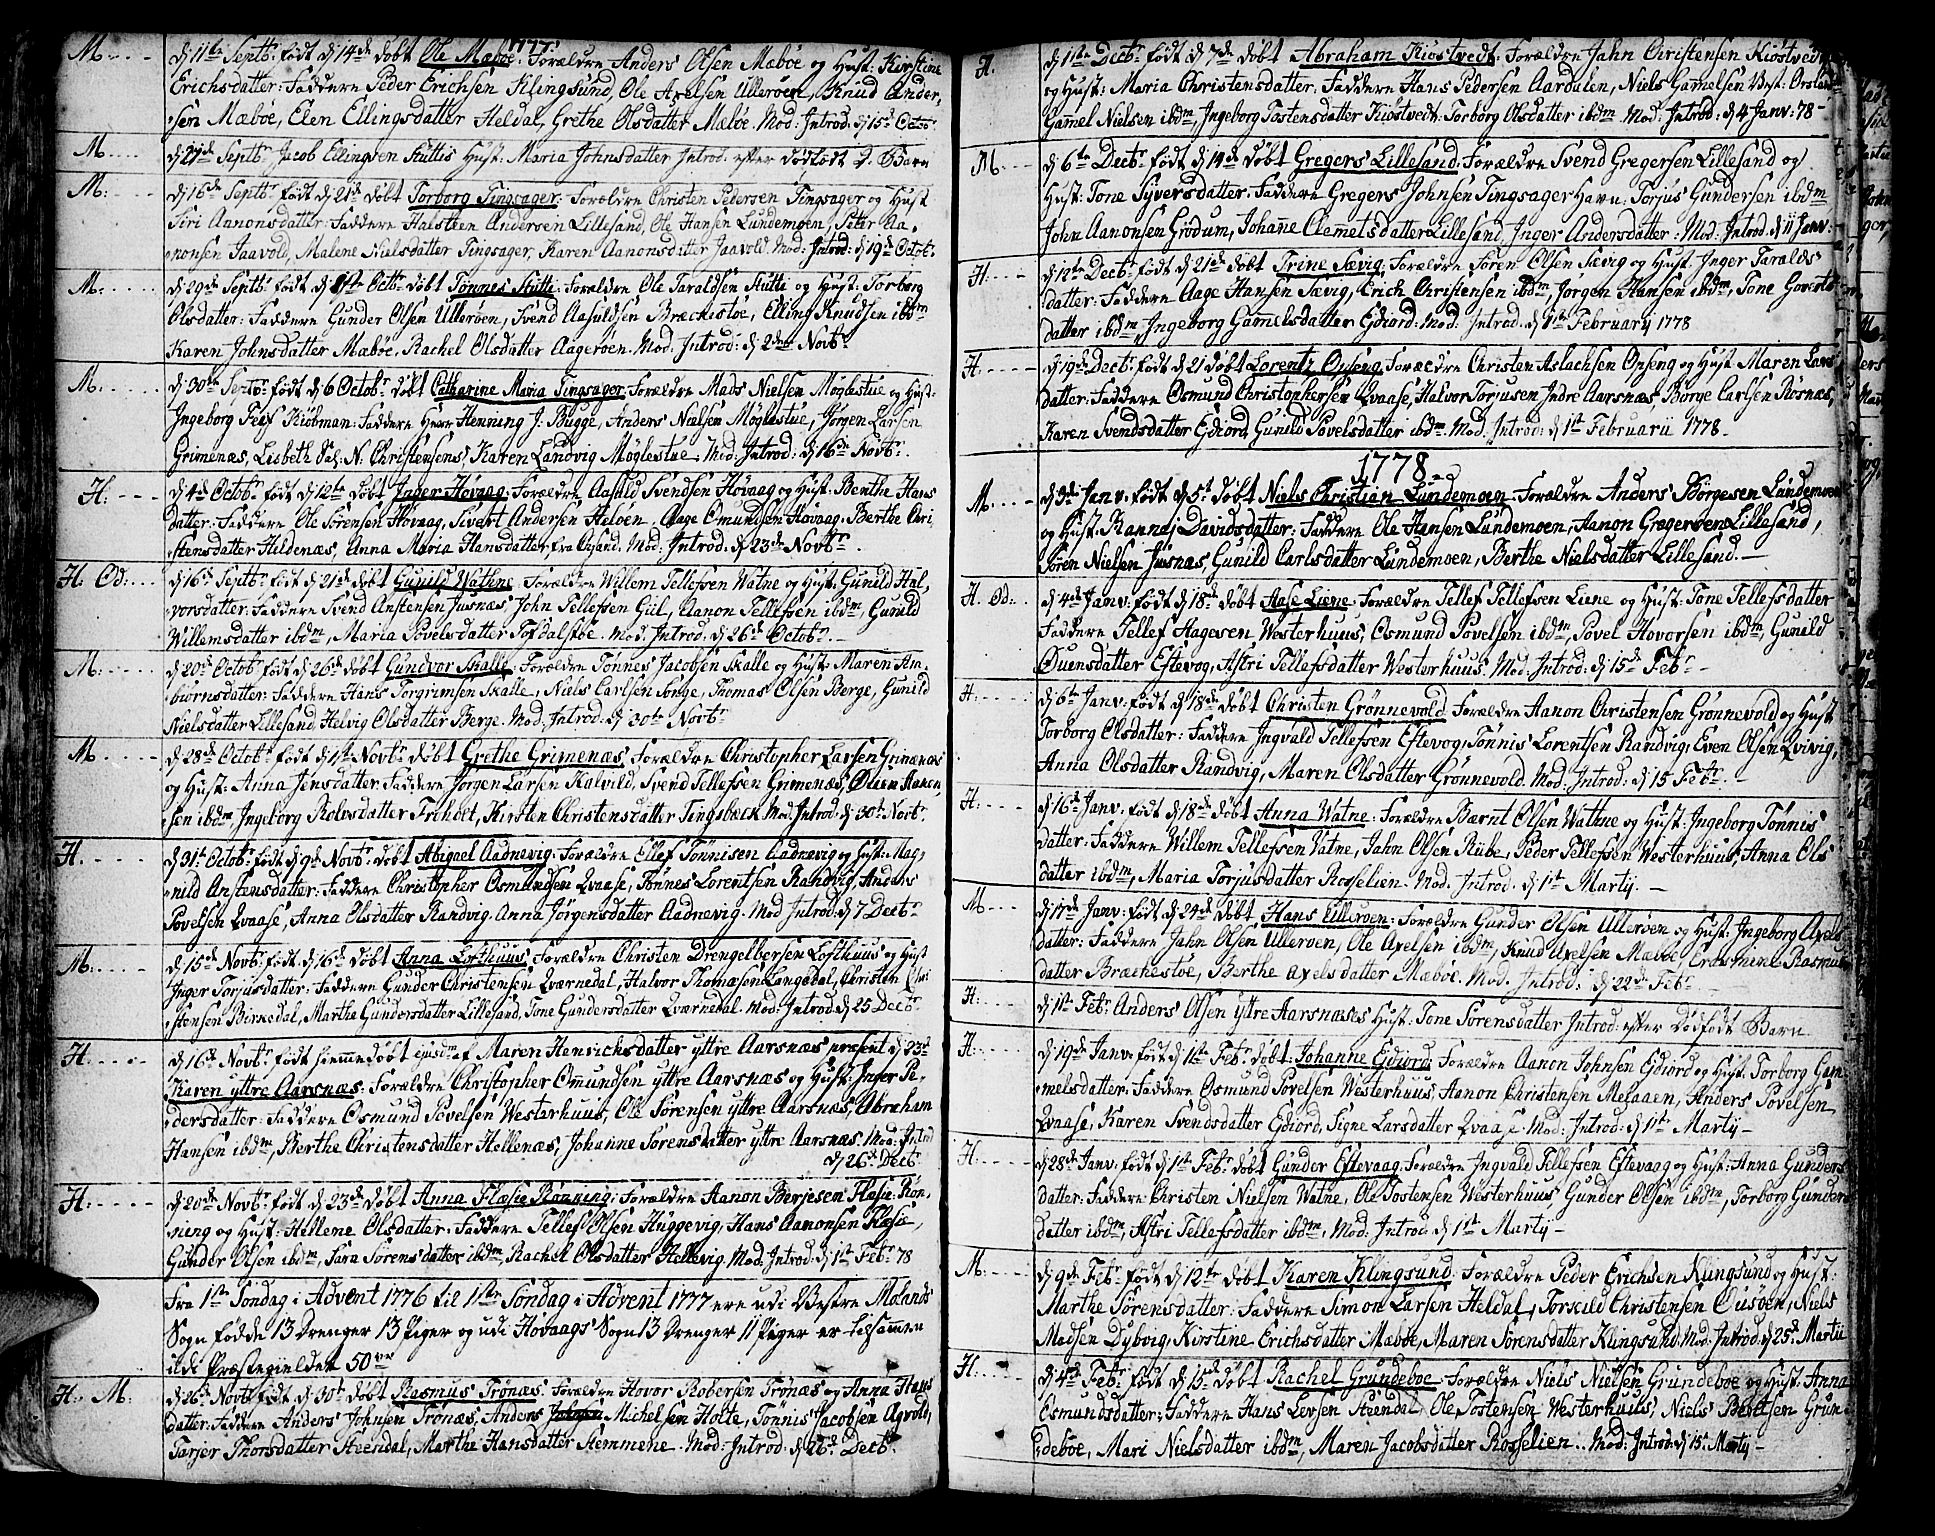 1777.
M. d 11te Septbr: født d 14de døbt Ole Mæbøe. Forældre Anders Olsen Mæbøe og Hust: Kirstine
Erichsdatter: Faddere Peder Erichsen Klingsund, Ole Axelsen Ullerøen, Knud Ander,
sen Mæbøe, Elen Ellingsdatter Heldal, Grethe Olsdatter Mæbøe. Mod: Introd: d 15de Octobr
M. Septbr Jacob Ellingsen Stuttis Hust: Maria Johnsdatter Introd: efter dødfødt Barn
M: d 16de Septbr født d 21de døbt Torborg Tingsager: Forældre Christen Pedersen Tingsager og Hust
Siri Aanonsdatter: Faddere Halsteen Andersen Lillesand, Ole Hansen Lundemoen, Peter Aa-
nonsen Jaavold, Malene Nielsdatter Tingsager, Karen Aanonsdatter Jaavold Mod: Introd: d 19de Octobr.
M: d 29de Septbr født d Octbr døbt Tønnes Stutte: Forældre Ole Taraldsen Stutte og Hust: Torborg
Olsdatter: Faddere Gunder Olsen Ullerøen, Svend Aasuldsen Brechistøe, Elling Knudsen ibdm
Karen Johnsdatter Mæbøe, Rachel Olsdatter Aagerøen. Mod: Introd: d 2den Novbr.
M. d 30te Septbr: født d 6 Octobr: døbt Catharine Maria Tingsager, Forældre Mads Nielsen Møglestue og Hust:
Ingeborg Kiøbman: Faddere Herr Henning J: Bugge, Anders Nielsen Møglestue, Jørgen Larsen
Grimenæs, Lisbeth Sal: N: Christensens, Karen Landvig Møglestue: Mod: Introd: d 16de Novbr.
H: d 4de Octobr født d 12te døbt Inger Høvaag: Forældre Aasuld Svendsen Høvaag og Hust: Benthe Hans
datter: Faddere Ole Sørensen Høvaag, Sivert Andersen Heløen, Aage Omundsen Høvaag, Berthe Chri
stensdatter Heldenæs, Anna Maria Hansdatter, fra Mod: Introd: d 23de Novbr.
H. Ød: d 16de Septbr født d 21de døbt Gunild Wathne. Forældre Willem Tellefsen Watne og Hust: Gunild Hal,
vorsdatter: Faddere Svend Anstensen Jusnæs, John Tellefsen Giil, Aanon Tellefsen ibdm, Gunild
Willemsdatter ibdm, Maria Povelsdatter Tofdalsbøe. Mod: Introd: d 26de Octobr.
M: d 20de Octobr født d 26de døbt Gundvor Skalle: Forældre Tønnes Jacobsen Skalle og Hust: Maren Am-
biørnsdatter: Faddere Hans Torgrimsen Skalle, Niels Carlsen Songe, Thomas Olsen Berge, Gunild
Nielsdatter Lillesand, Helvig Olsdatter Berge. Mod: Introd: d 30te Novbr
M: d 28de Octobr: født d 1ste Novbr døbt Grethe Grimenæs. Forældre Christopher Larsen Grimenæs
og Hust: Anna Jensdatter: Faddere Jørgen Larsen Kalvild, Svend Tellefsen Grimenæs, Øuen Aanon,
sen ibdm, Ingeborg Rolvsdatter Froholt, Kirsten Christensdatter Tingsbæck Mod: Introd: d 30te Novbr.
H. d 31te Octobr: født d 9de Novbr: døbt Abigael Aadnevig: Forældre Ellef Tønnisen Aadnevig og Hust: Mag,
nild Anstensdatter: Faddere Christopher Osmundsen Qvaase, Tønnes Lorentsen Randvig, Anders
Povelsen Qvaase, Anna Olsdatter Randvig, Anna Jørgensdatter Aadnevig. Mod: Introd: d 7 Decbr.
M: d 15de Novbr: født d 16de døbt Anna Lofthuus: Forældre Christen Drengelbersen Lofthuus og Hust
Inger Torjusdatter: Faddere Gunder Christensen Qvarnedal, Halvor Thomæsen Langedal, Christen Chri
stensen Birkedal, Marthe Gundersdatter Lillesand, Tone Gundersdatter Qvarnedal. Mod: Introd: d 25 Decbr.
H: d 16de Novbr: født hiemmedøbt ejusdm af Maren Henrichsdatter yttre Aarsnæs præsent d 23de
Karen yttre Aarsnæs. Forældre Christopher Omundsen yttre Aarsnæs og Hust: Inger Pe-
dersdatter: Faddere Osmund Povelsen Westerhuus, Ole Sørensen yttre Aarsnæs, Abraham
Hansen ibdm, Berthe Christensdatter Hellenæs, Johanne Sørensdatter yttre Aarsnæs. Mod: Introd
d 26de Decbr
H: d 20de Novbr: født d 23de døbt Anna Flæsie Rønning: Forældre Aanon Berjesen Flæsie Røn-
ning og Hust: Hellene Olsdatter: Faddere Tellef Olsen Huggevig, Hans Aanonsen Flæsie,
Gunder Olsen ibdm, Sara Sørensdatter ibdm, Rachel Olsdatter Hellevig. Mod: Introd: d 1ste Febr: 78
Fra 1ste Søndag i Advent 1776 til 1ste Søndag i Advent 1777 ere udi Vestre Molands
Sogn fødde 13 Drenger 13 Piger og udi Høvaags Sogn 13 Drenger 11 Piger er tilsammen
udi Præstegieldet 50
H. M. d 26de Novbr født d 30te døbt Rasmus Trønæs. Forældre Hovor Robersen Trønæs og Anna Hans
datter: Faddere Anders Johnsen Trønæs, Anders Michelsen Holte, Tønnis Jacobsen Agvold,
Tarjer Thorsdatter Steendal, Marthe Hansdatter Stemmene. Mod: Introd: d 26de Decbr.
H. d 1ste Decbr: født d 7de døbt Abraham Kiøstvedt. Forældre Jahn Christensen Kiøstvedt
og Hust: Maria Christensdatter. Faddere Hans Pedersen Aardalen, Niels Gamelsen
Gammel Nielsen ibdm, Ingeborg Tostensdatter Kiøstvedt, Torborg Olsdatter ibdm Mod: Introd: d 4 Janv: 78-
M. d 6te Decbr født d 14de døbt Gregers Lillesand: Forældre Svend Gregersen Lillesand og
Hust: Tone Syversdatter: Faddere Gregers Johnsen Tingsager Havn, Torjus Gundersen ibdm
John Aanonsen Grødum, Johanne Clemetsdatter Lillesand, Inger Andersdatter: Mod: Introd: d 11 Janv:
H: d 12te Decbr: født d 21de døbt Trine Sævig, Forældre Søren Olsen Sævig og Hust: Inger Taralds
datter: Faddere Aage Hansen Sævig, Erich Christensen ibdm, Jørgen Hansen ibdm, Tone Goverts
datter ibdm, Ingeborg Gammelsdatter Ediord. Mod: Introd: d 1ste February 1778
H: d 19de Decbr: født d 21 døbt Lorentz Opseng, Forældre Christen Aslachsen Opseng og Hust: Maren Lars
datter: Faddere Osmund Christophersen Qvaase, Halvor Torjusen Indre Aarsnæs, Børge Carlsen Rosnæs,
Karen Svendsdatter Ediord, Gunild Povelsdatter ibdm. Mod: Introd: d 1ste Februarii 1778-
1778
M. d 3de Janv: født d 5te døbt Niels Christian Lundemoen. Forældre Anders Børgesen Lundemoen
og Hust: Rannej Davidsdatter: Faddere Ole Hansen Lundemoen, Aanon Gregersen Lillesand,
Søren Nielsen Jusnæs, Gunild Carlsdatter Lundemoen, Berthe Nielsdatter Lillesand.
H. Ød: d 4de Janv: født d 18de døbt Aase Liene: Forældre Tellef Tellefsen Liene og Hust: Tone Tellefsdatter
Faddere Tellef Hagesen Westerhuus, Osmund Povelsen ibdm, Povel Hovorsen ibdm, Gunild
Øuensdatter Eftevog, Astri Tellefsdatter Westerhuus. Mod: Introd: d 15de Febr.
H: d 6te Janv: født d 18de døbt Christen Grønnevold. Forældre Aanon Christensen Grønnevold og Hust
Torborg Olsdatter: Faddere Ingvald Tellefsen Eftevog, Tønnis Lorentsen Randvig, Even Olsen Qvivig,
Anna Olsdatter Randvig, Maren Olsdatter Grønnevold. Mod: Introd: d 15 Febr.
H: d 16de Janv: født d 18de døbt Anna Watne: Forældre Bærnt Olsen Wathne og Hust: Ingeborg Tønnis
datter: Faddere Willem Tellefsen Vatne, Jahn Olsen Rube, Peder Tellefsen Westerhuus, Anna Ols
datter ibdm, Maria Torjusdatter Rosselien. Mod: Introd: d 1ste Martij.
M d 17de Janv: født d 24de døbt Hans Ullerøen: Forældre Gunder Olsen Ullerøen og Hust: Ingeborg Axels
datter: Faddere Jahn Olsen Ullerøen, Ole Axelsen ibdm, Knud Axelsen Mæbøe, Erasmine Rasmus
datter Bræchestøe, Berthe Axelsdatter Mæbøe. Mod: Introd: d 22de Febr.
H: d 1ste Febr: Anders Olsen yttre Aarsnæses Hust: Tone Sørensdatter Introd: efter Dødfødt Barn.
H: d 19de Janv: født d 1ste Febr: døbt Johanne Ediord: Forældre Aanon Johnsen Ediord og Hust: Torborg Gam
melsdatter: Faddere Osmund Povelsen Westerhuus, Aanon Christensen Melaaen, Anders Povelsen
Qvaase, Karen Svendsdatter Ediord, Signe Larsdatter Qvaase. Mod: Introd: d 1ste Martij
H: d 28de Janv: født d 1ste Febr: døbt Gunder Eftevaag, Forældre Ingvald Tellefsen Eftevaag og Hust: Anna Gunders
datter: Faddere Christen Nielsen Watne, Ole Tostensen Westerhuus, Gunder Olsen ibdm, Torborg Gunders
datter ibdm, Astri Tellefsdatter ibdm. Mod: Introd: d 1ste Martij
M: d 9de Febr: født d 12te døbt Karen Klingsund: Forældre Peder Erichsen Klingsund og Hust:
Marthe Sørensdatter: Faddere Simon Larsen Heldal, Torkild Christensen Ousøen, Niels
Madsen Dybvig, Kirstine Erichsdatter Mæbøe, Maren Sørensdatter Klingsund, Mod: Introd: d 25de Martii
H: d 4de Febr: født d 15de døbt Rachel Grundeboe: Forældre Niels Nielsen Grundeboe og Hust: Anna
Osmundsdatter: Faddere Hans Levsen Steendal, Ole Tostensen Westerhuus, Niels Bentsen Grun
deboe, Mari Nielsdatter ibdm, Maren Jacobsdatter Rosselien. Mod: Introd: d 15de Martij